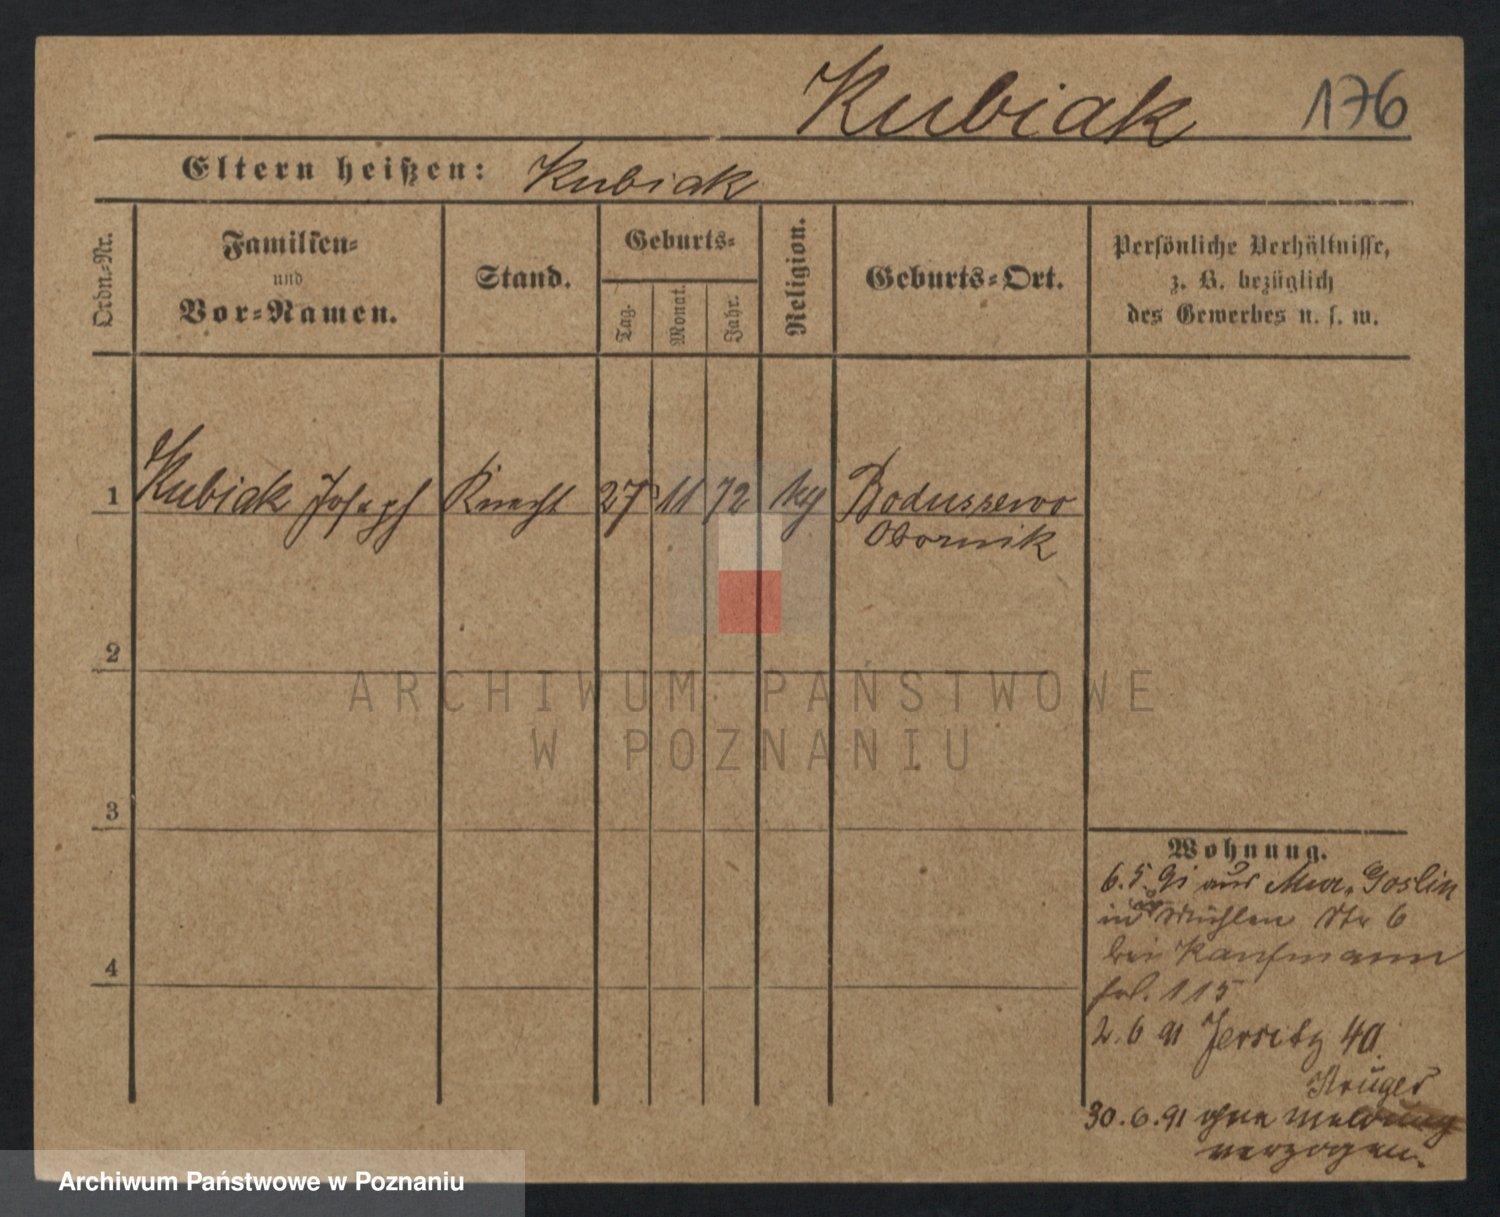 Kubiak 176
Eltern heißen: Kubiak
Ordn.-Nr.
Familien-
und
Vor-Namen.
Stand.
Geburts-
Tag.
Monat.
Jahr.
Religion.
Geburts-Ort.
Persönliche Verhältnisse,
z. B. bezüglich
des Gewerbes u. s. w.
1 Kubiak Joseph Knecht 27 11 72 kg Bodussewo
Obornik
2
3
4
ARCHIWUM PAŃSTWOWE
W POZNANIU
Wohnung.
6.5.91 aus Mur. Goslin
in Mühlen Str 6
bei Kaufmann
fol. 115
2.6 91 Jersitz 40
Krüger
30.6.91 ohne Meldung
verzogen.
Archiwum Państwowe w Poznaniu